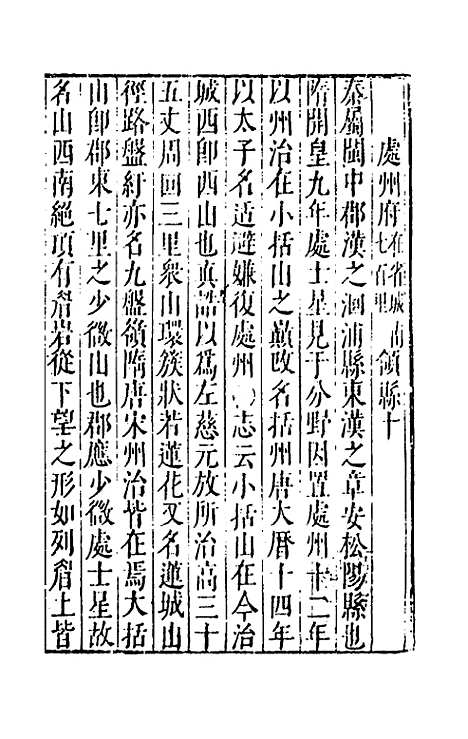 處州府在省城南七百里領縣十
秦屬閩中郡漢之洄浦縣東漢之章安松陽縣也
隋開皇九年處士星見于分野因置處州十二年
以州治在小括山之巔改名括州唐大曆十四年
以太子名适避嫌復處州志云小括山在今治
城西卽西山也真誥以爲左慈元放所治高三十
五丈周回三里衆山環簇狀若蓮花又名蓮城山
徑路盤紆亦名九盤嶺隋唐宋州治皆在焉大括
山卽郡東七里之少微山也郡應少微處士星故
名山西南絶頂有眉岩從下望之形如列眉上皆